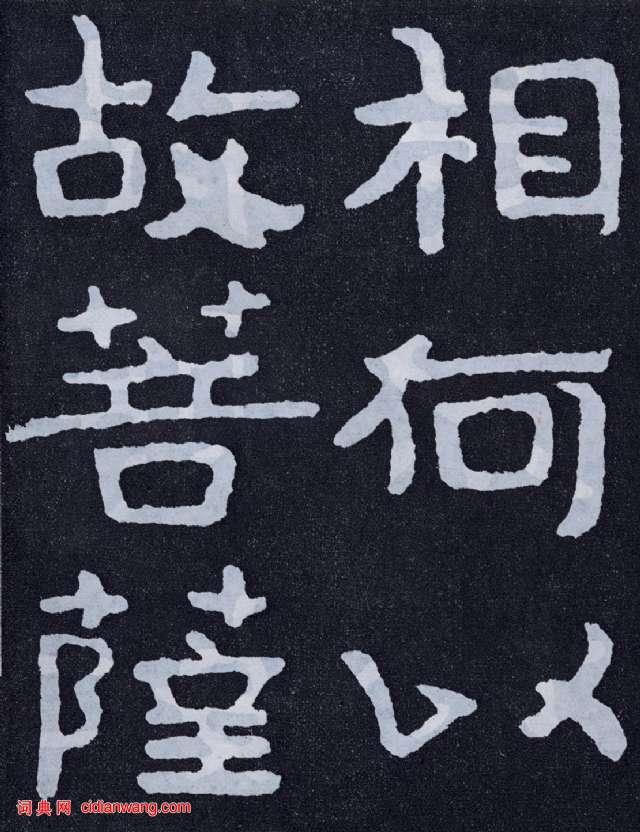 相何以
故菩薩
词典网 cidianwang.com